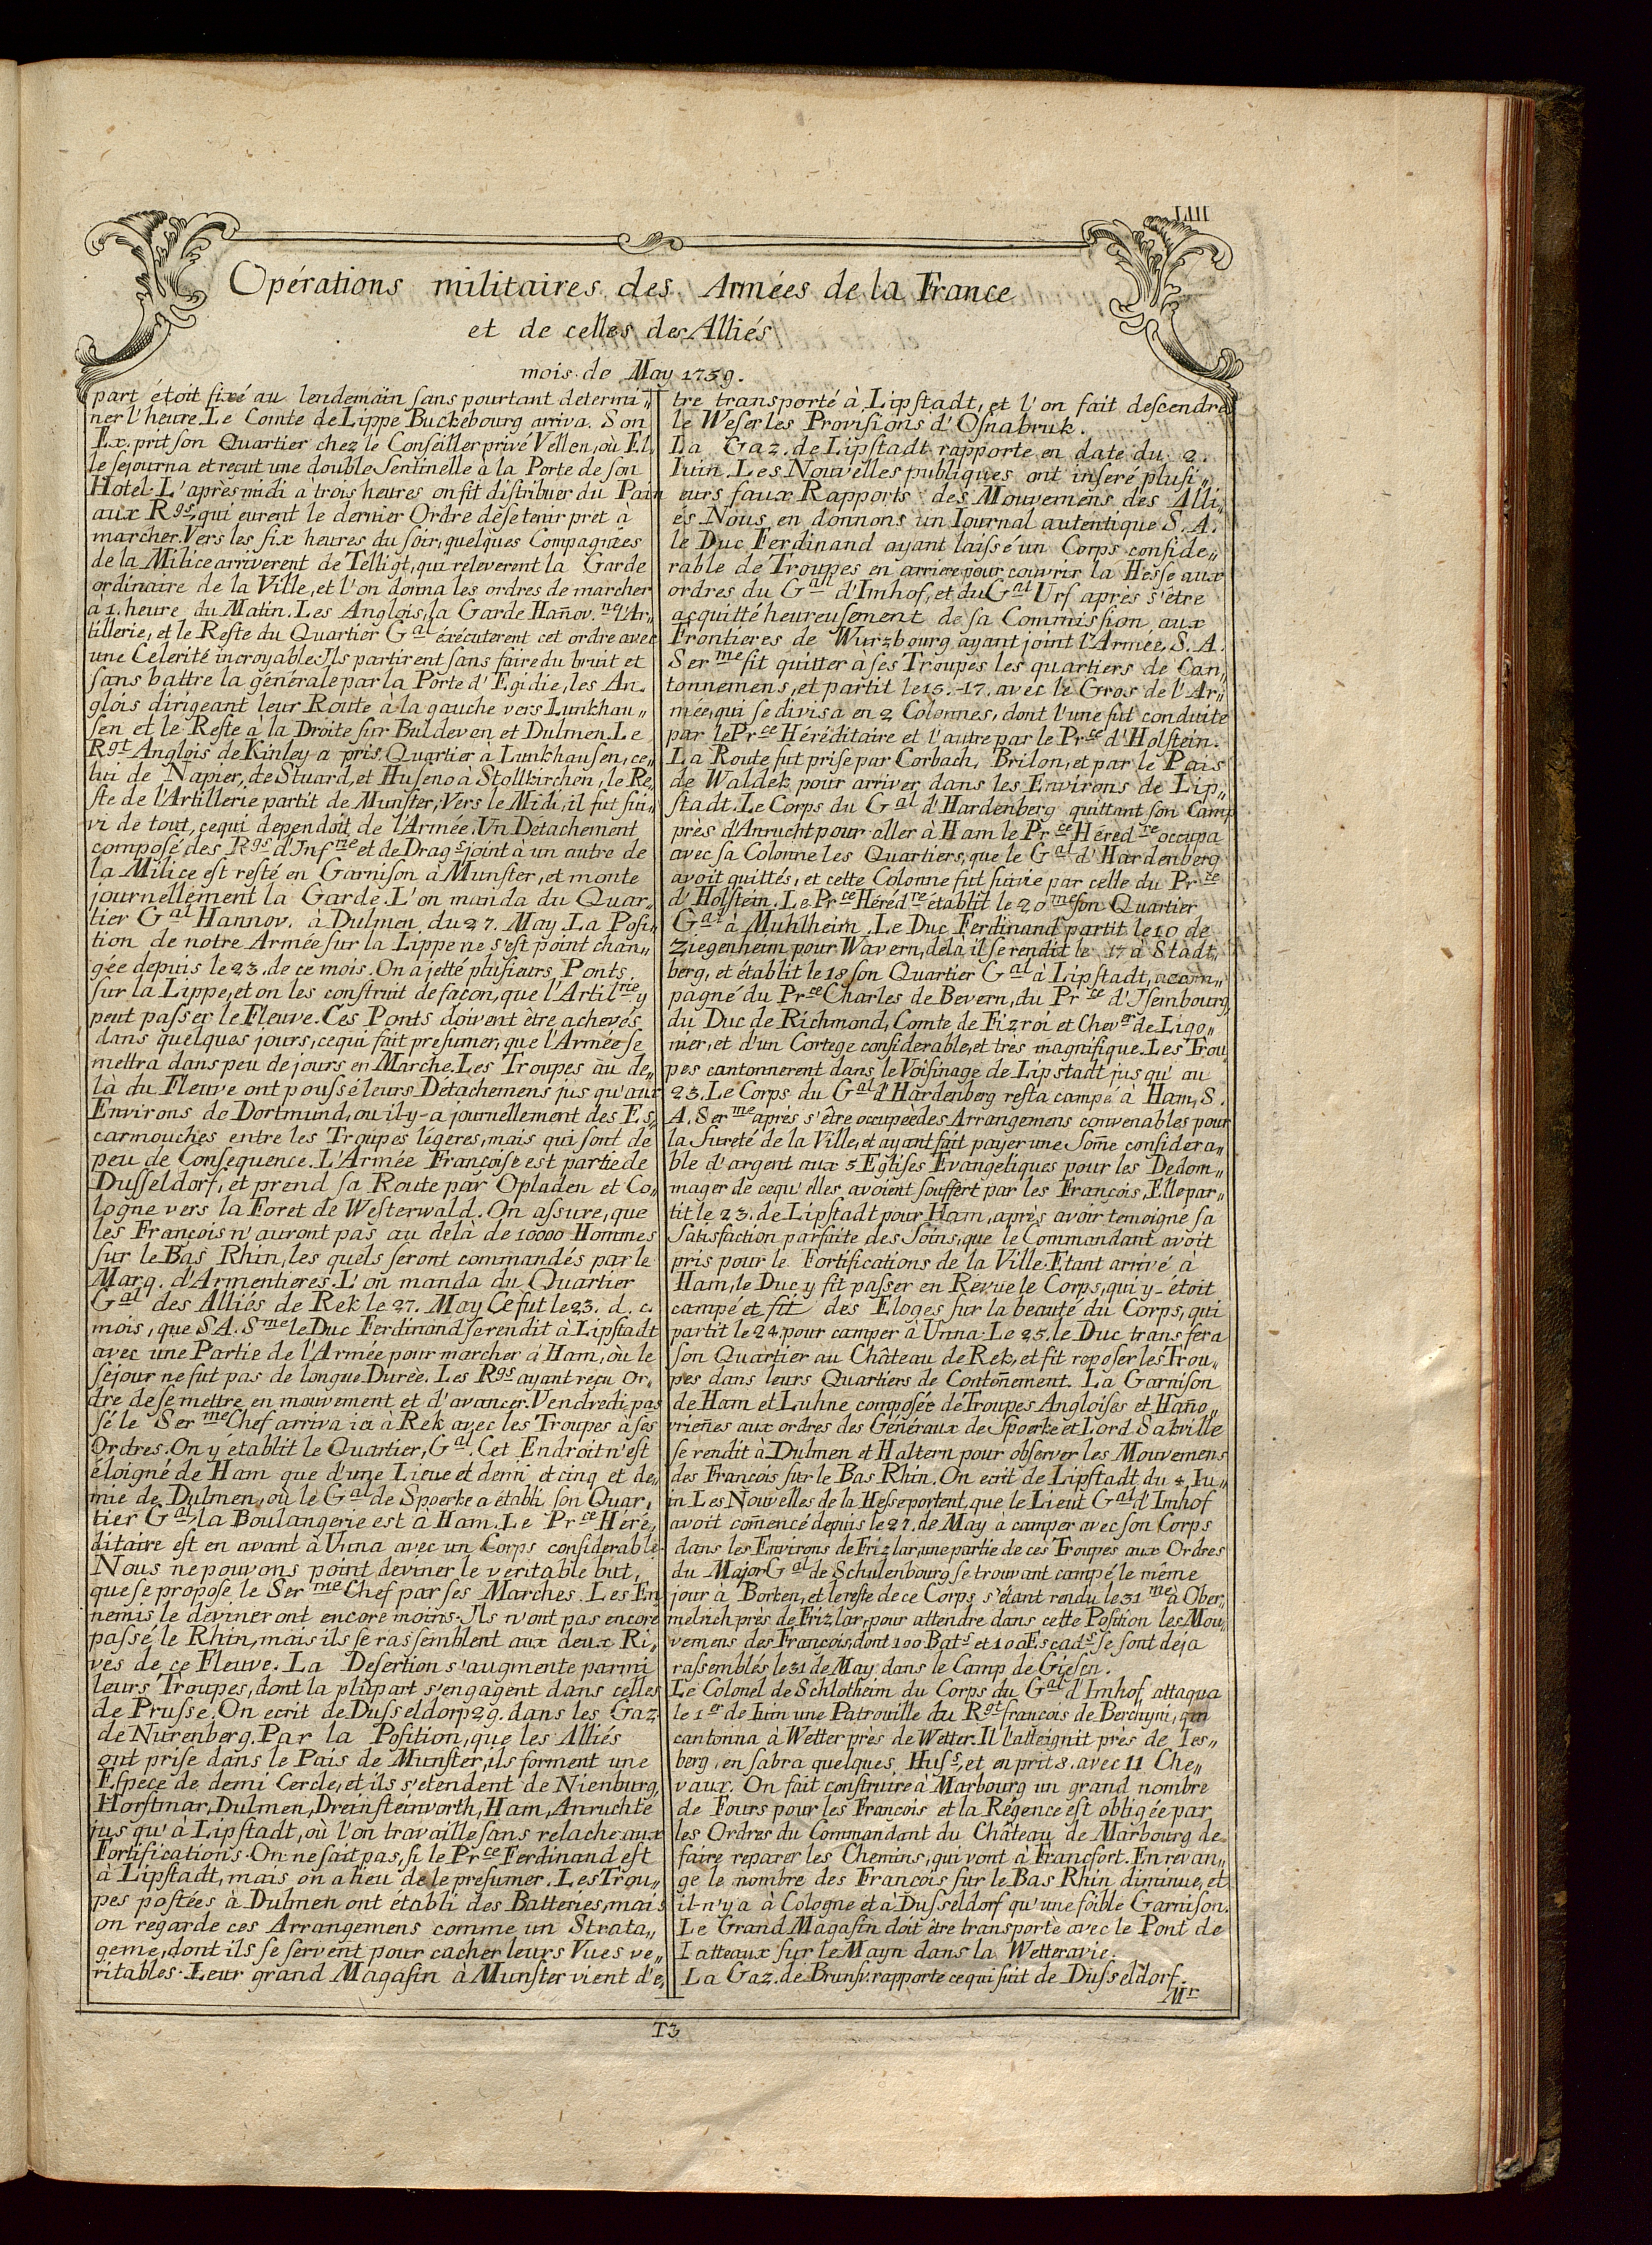 LIII
Opérations militaires des Armées de la France
et de celles des Alliés
mois de May 1759.
part étoit fixé au lendemain sans pourtant determi„
ner l'heure. Le Comte de Lippe Buckebourg arriva. Son
Ex. prit son Quartier chez le Conseiller privé Vellen, où El„
le sejourna et recut une double Sentinelle à la Porte de son
Hotel. L'après midi à trois heures on fit distribuer du Pain
aux Rgs, qui eurent le dernier Ordre de se tenir pret à
marcher. Vers les six heures du soir, quelques Compagnies
de la Milice arriverent de Telligt, qui releverent la Garde
ordinaire de la Ville, et l'on donna les ordres de marcher
à 1. heure du Matin. Les Anglois, la Garde Hañov.ne l'Ar„
tillerie, et le Reste du Quartier Gal éxécuterent cet ordre avec
une Celerité incroyable. Ils partirent sans faire du bruit et
sans battre la générale par la Porte d'Egidie, les An„
glois dirigeant leur Route à la gauche vers Lunkhau„
sen et le Reste à la Droite sur Buldeven et Dulmen. Le
Rgt Anglois de Kinley a pris Quartier à Lunkhausen, ce„
lui de Napier, de Stuard, et Huseno à Stollkirchen, le Re„
ste de l'Artillerie partit de Munster, Vers le Midi, il fut sui„
vi de tout, cequi dependoit de l'Armée. Un Detachement
composé des Rgs d'Infrie et de Drags joint à un autre de
la Milice est resté en Garnison à Munster, et monte
journellement la Garde. L'on manda du Quar„
tier Gal Hannov. à Dulmen du 27. May La Posi„
tion de notre Armée sur la Lippe ne s'est point chan„
gée depuis le 23. de ce mois. On a jetté plusieurs Ponts
sur la Lippe, et on les construit de façon, que l'Artilrie y
peut passer le Fleuve. Ces Ponts doivent être achevés
dans quelques jours, cequi fait presumer, que l'Armée se
mettra dans peu de jours en Marche. Les Troupes au de„
là du Fleuve ont poussé leurs Détachemens jus qu'aux
Environs de Dortmund, ou il-y-a journellement des Es„
carmouches entre les Troupes légeres, mais qui sont de
peu de Consequence. L'Armée Françoise est partie de
Dusseldorf, et prend sa Route par Opladen et Co„
logne vers la Foret de Westerwald. On assure, que
les François n'auront pas au delà de 10000 Hommes
sur le Bas Rhin, les quels seront commandés par le
Marq. d'Armentieres. L'on manda du Quartier
Gal des Alliés de Rek le 27. May Ce fut le 23. d. c.
mois, que S A. Sme le Duc Ferdinand se rendit à Lipstadt
avec une Partie de l'Armée pour marcher à Ham, où le
séjour ne fut pas de longue Durèe. Les Rgs ayant reçu Or„
dre de se mettre en mouvement et d'avancer. Vendredi pas
sé le Serme Chef arriva ici à Rek avec les Troupes à ses
Ordres. On y établit le Quartier, Gal. Cet Endroit n'est
éloigné de Ham que d'une Lieue et demi et cinq et de„
mie de Dulmen, où le Gal de Spoerke a établi son Quar„
tier Gal, la Boulangerie est à Ham. Le Prce Héré„
ditaire est en avant à Unna avec un Corps considerable.
Nous ne pouvons point deviner le veritable but,
que se propose le Serme Chef par ses Marches. Les En„
nemis le dévineront encore moins. Ils n'ont pas encore
passé le Rhin, mais ils se rassemblent aux deux Ri„
ves de ce Fleuve. La Desertion s'augmente parmi
leurs Troupes, dont la plupart s'engagent dans celles
de Prusse. On ecrit de Dusseldorp 29. dans les Gaz
de Nurenberg. Par la Position, que les Alliés
ont prise dans le Pais de Munster, ils forment une
Espece de demi Cercle, et ils s'etendent de Nienburg,
Horstmar, Dulmen, Dreinsteinvorth, Ham, Anruchte
jus qu'à Lipstadt, où l'on travaille sans relache aux
Fortifications. On ne sait pas, si le Prce Ferdinand est
à Lipstadt, mais on a lieu de le presumer. Les Trou„
pes postées à Dulmen ont établi des Batteries, mais
on regarde ces Arrangemens comme un Strata„
geme, dont ils se servent pour cacher leurs Vues ve„
ritables. Leur grand Magasin à Munster vient d'e„
tre transporté à Lipstadt, et l'on fait descendre
le Weser les Provisions d'Osnabruk.
La Gaz. de Lipstadt rapporte en date du 2.
Iuin. Les Nouvelles publiques ont inseré plusi„
eurs faux Rapports des Mouvemens des Alli„
és Nous en donnons un Iournal autentique S. A.
le Duc Ferdinand ayant laissé un Corps conside„
rable de Troupes en arriere pour couvrir la Hesse aux
ordres du Gal d'Imhof, et du Gal Urf après s'être
acquitté heureusement de sa Commission aux
Frontieres de Wurzbourg ayant joint l'Armée, S. A.
Serme fit quitter à ses Troupes les quartiers de Can„
tonnemens, et partit le 15.-17. avec le Gros de l'Ar„
mée, qui se divisa en 2 Colonnes, dont l'une fut conduite
par le Prce Héréditaire et l'autre par le Prce d'Holstein.
La Route fut prise par Corbach, Brilon, et par le Païs
de Waldek pour arriver dans les Environs de Lip„
stadt. Le Corps du Gal d'Hardenberg quittant son Camp
près d'Anrucht pour aller à Ham le Prce Hérédre occupa
avec sa Colonne les Quartiers, que le Gal d'Hardenberg
avoit quittés, et cette Colonne fut suivie par celle du Prce
d'Holstein. Le Prce Hérédre établit le 20me son Quartier
Gal à Muhlheim. Le Duc Ferdinand partit le 10 de
Ziegenheim pour Wavern, delà il se rendit le 17 à Stadt„
berg, et établit le 18 son Quartier Gal à Lipstadt, accom„
pagné du Prce Charles de Bevern, du Prce d'Isembourg,
du Duc de Richmond, Comte de Fizroi et Chever de Ligo„
nier, et d'un Cortege considerable, et très magnifique. Les Trou„
pes cantonnerent dans le Voisinage de Lipstadt jus qu' au
23. Le Corps du Gal d'Hardenberg resta campé à Ham, S.
A. Serme après s'être occupeè des Arrangemens convenables pour
la Sureté de la Ville, et ayant fait payer une Som̃e considera„
ble d'argent aux 5 Eglises Evangeliques pour les Dedom„
mager de cequ'elles avoient souffert par les François, Elle par„
tit le 23. de Lipstadt pour Ham, après avoir temoigné sa
Satisfaction parfaite des Soins, que le Commandant avoit
pris pour le Fortifications de la Ville. Etant arrivé à
Ham, le Duc y fit passer en Revue le Corps, qui y-étoit
campé et fit des Eloges sur la beauté du Corps, qui
partit le 24. pour camper à Unna. Le 25. le Duc transfera
son Quartier au Château de Rek, et fit reposer les Trou„
pes dans leurs Quartiers de Contoñement. La Garnison
de Ham et Luhne composée de Troupes Angloises et Hañov„
vrieñes aux ordres des Généraux de Spoerke et Lord Sakville
se rendit à Dulmen et Haltern pour observer les Mouvemens
des Francois sur le Bas Rhin. On ecrit de Lipstadt du 4. Iu„
in Les Nouvelles de la Hesse portent, que le Lieut Gal d'Imhof
avoit com̃encé depuis le 27. de May à camper avec son Corps
dans les Environs de Frizlar, une partie de ces Troupes aux Ordres
du Major Gal de Schulenbourg se trouvant campé le même
jour à Borken, et le reste de ce Corps s'étant rendu le 31me à Ober„
melrich près de Frizlar, pour attendre dans cette Position les Mou„
vemens des Francois, dont 100 Bats et 100 Escads se sont deja
rassemblés le 31 de May dans le Camp de Giesen.
Le Colonel de Schlotheim du Corps du Gal d'Imhof attaqua
le 1er de Iuin une Patrouille du Rgt francois de Berchyni, qui
cantonna à Wetter près de Wetter. Il l'atteignit près de Ies„
berg, en sabra quelques Huss, et en prit 8. avec 11 Che„
vaux. On fait construire à Marbourg un grand nombre
de Fours pour les Francois et la Régence est obligée par
les Ordres du Commandant du Château de Marbourg de
faire reparer les Chemins, qui vont à Francfort. En revan„
ge le nombre des Francois sur le Bas Rhin diminue, et
il-n'y a à Cologne et à Dusseldorf qu'une foible Garnison.
Le Grand Magasin doit être transporté avec le Pont de
Batteaux sur le Mayn dans la Wetteravie.
La Gaz. de Brunsv. rapporte cequi suit de Dusseldorf.
Mr
T3